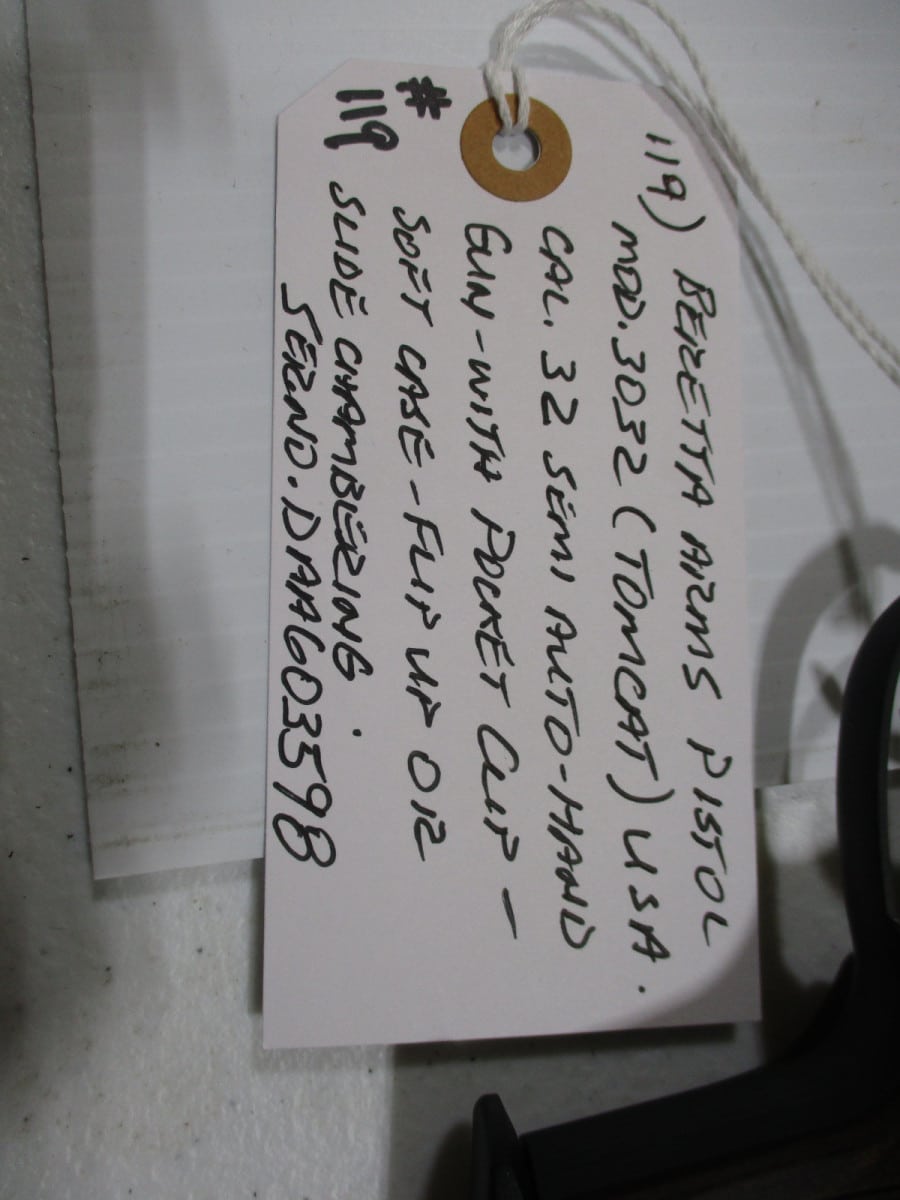 119) BERETTA ARMS PISTOL
MOD. 3032 (TOMCAT) USA.
CAL. 32 SEMI AUTO-HAND
GUN-WITH POCKET CLIP-
SOFT CASE-FLIP UP OR
# 119 SLIDE CHAMBERING.
SERNO. DAA603598